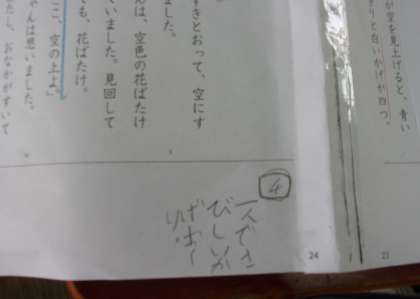 が空を見上げると、青い
白いかげが四つ。
すきとおって、空にす
ました。
んは、空色の花ばたけ
いました。見回して
ても、花ばたけ。
ここ、空の上よ。」
ゃんは思いました。
おなかがすいて
4
一人でさ
びしいか
げおー
り。
24
21